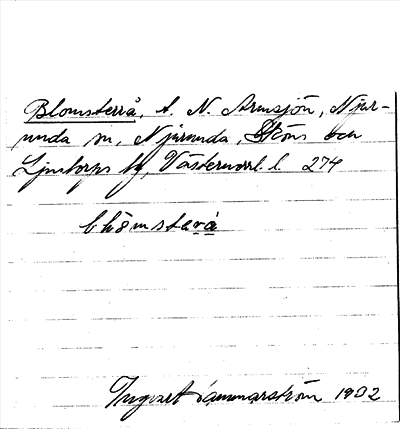 Blomsterrå, t. N. Armsjön, Njur-
unda sn, Njurunda, Sköns och
Ljustorps tg, Västernorrl. l. 274
blòmsterå
Ingvart Hammarström 1932